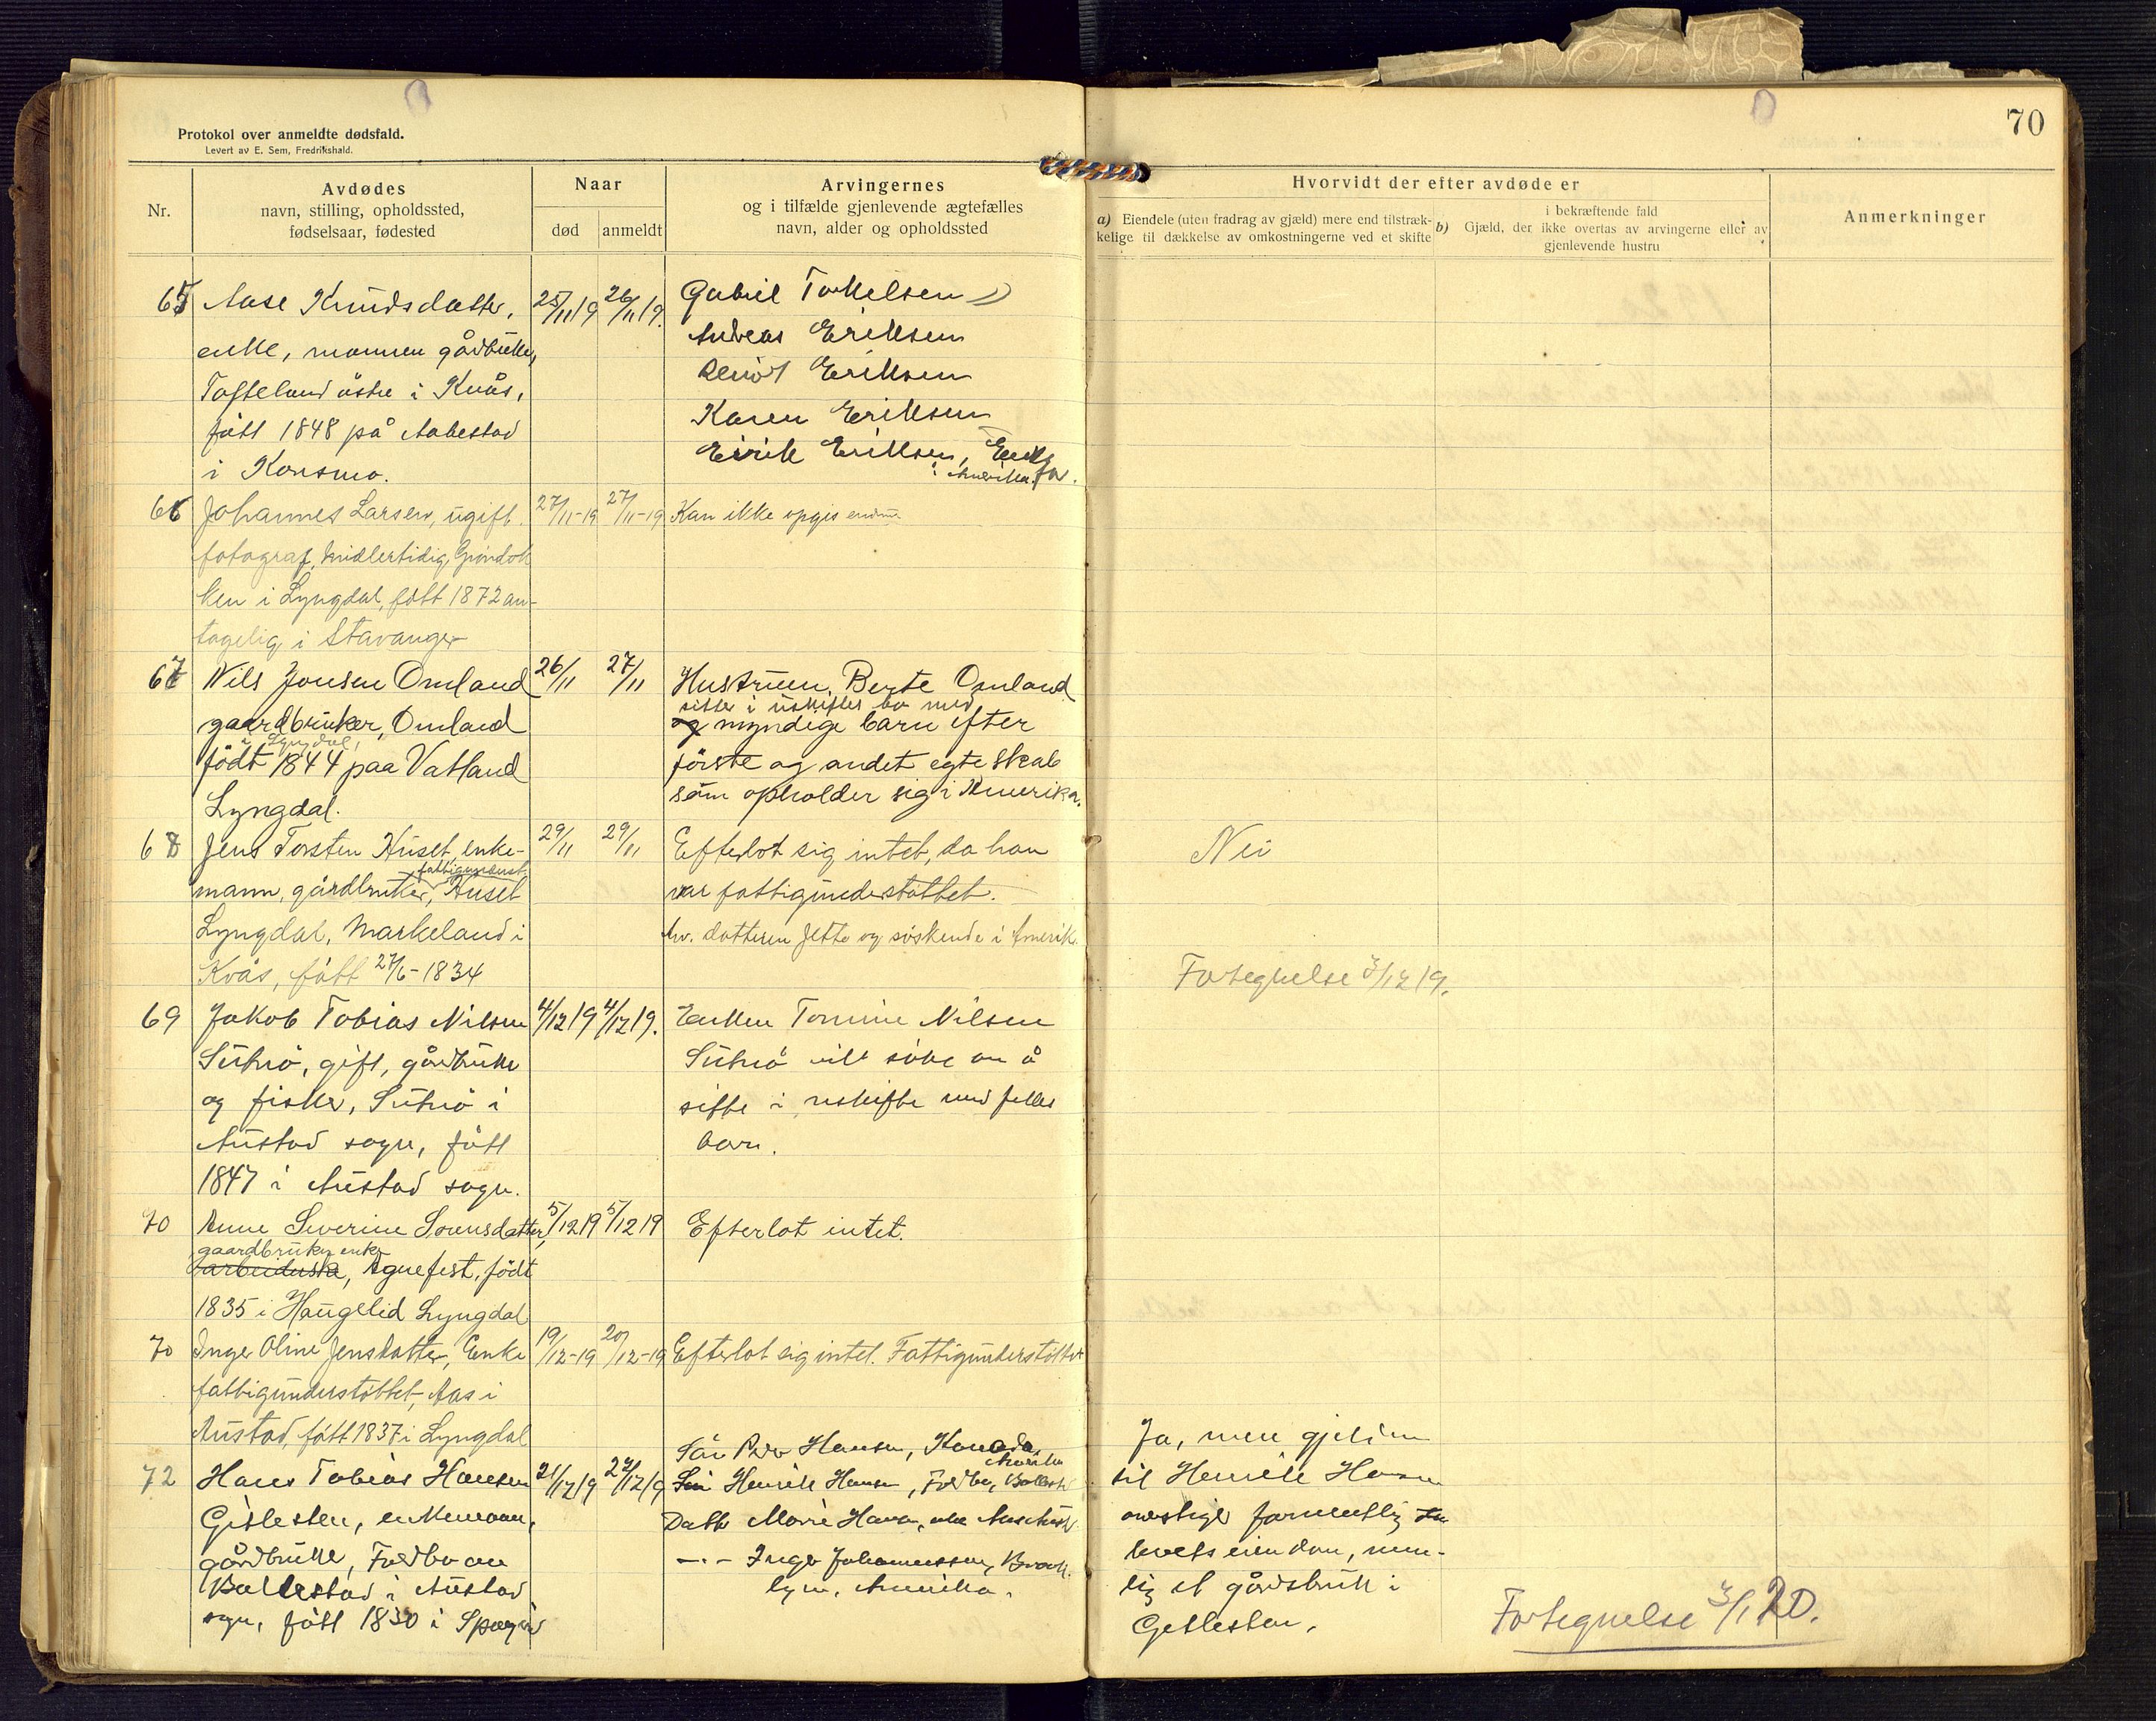 70
Protokol over anmeldte dødsfald.
Levert av E. Sem, Fredrikshald.
Nr.
Avdødes
navn, stilling, opholdssted,
fødselsaar, fødested
Naar
død
anmeldt
Arvingernes
og i tilfælde gjenlevende ægtefælles
navn, alder og opholdssted
Hvorvidt der efter avdøde er
a) Eiendele (uten fradrag av gjæld) mere end tilstræk-
kelige til dækkelse av omkostningerne ved et skifte
i bekræftende fald
b) Gjæld, der ikke overtas av arvingerne eller av
gjenlevende hustru
Anmerkninger
65 Aase Knudsdatter,
enke, mannen gårdbruker,
Tofteland østre i Kvås,
født 1848 på Aabestad
i Konsmo.
25/11 19
26/11 19.
Gabriel Torkelsen
Andreas Eriksen
Eriksen
Karen Eriksen
Eirik Eriksen,
i Amerika.
66 Johannes Larsen, ugift
fotograf, midlertidig, Grøndok
ken i Lyngdal, født 1872 an-
tagelig i Stavanger
27/11-19
27/11-19
Kan ikke opges endnu
67 Nils Jonsen Omland
gaardbruker, Omland
i Lyngdal,
født 1844 paa Vatland
Lyngdal.
26/11
27/11
Hustruen, Berte Omland
sitter i uskiftet bo med
og myndige barn efter
første og andet egteskab
som opholder sig i Amerika.
68 Jens Torsten Huset, enke-
fattigunderst.
mann, gårdbruker, Huset
Lyngdal, Markeland i
Kvås, født 27/6-1834
29/11
29/11
Efterlot sig intet, da han
var fattigunderstøttet.
Arv. datteren Jette og søskende i Amerik.
Nei
Fortegnelse 3/12 19.
69 Jakob Tobias Nilsen
gift, gårdbruker
og fisker, i
Austad sogn, født
1847 i Austad sogn.
4/12 19
4/12 19.
Enken Tomine Nilsen
vil søke om å
sitte i uskifte med felles
barn.
70 Anne Severine Sørensdatter,
gaardbruker enke
arbeiderske, Agnefest, født
1835 i Haugelid Lyngdal
5/12 19
5/12 19
Efterlot intet.
70 Inger Oline Jensdatter, Enke
fattigunderstøttet, Aas i
Austad, født 1837 i Lyngdal
19/12-19
20/12-19
Efterlot sig intet. Fattigunderstøttet
72 Hans Tobias Hansen
Gitlesten, enkemann,
gårdbruker,
Ballestad i Austad
sogn, født 1830 i
21/12 19
22/12 19
Søn Peder Hansen, Kanada,
Amerika
Søn Henrik Hansen,
Datter Marie Hansen,
— · — Inger Johannessen, Brook
lyn, Amerika.
Ja, men gjeld
til Henrik Hansen
overstiger formentlig
boets eiendom, nem-
lig et gårdsbruk i
Gitlesten.
Fortegnelse 3/1 20.